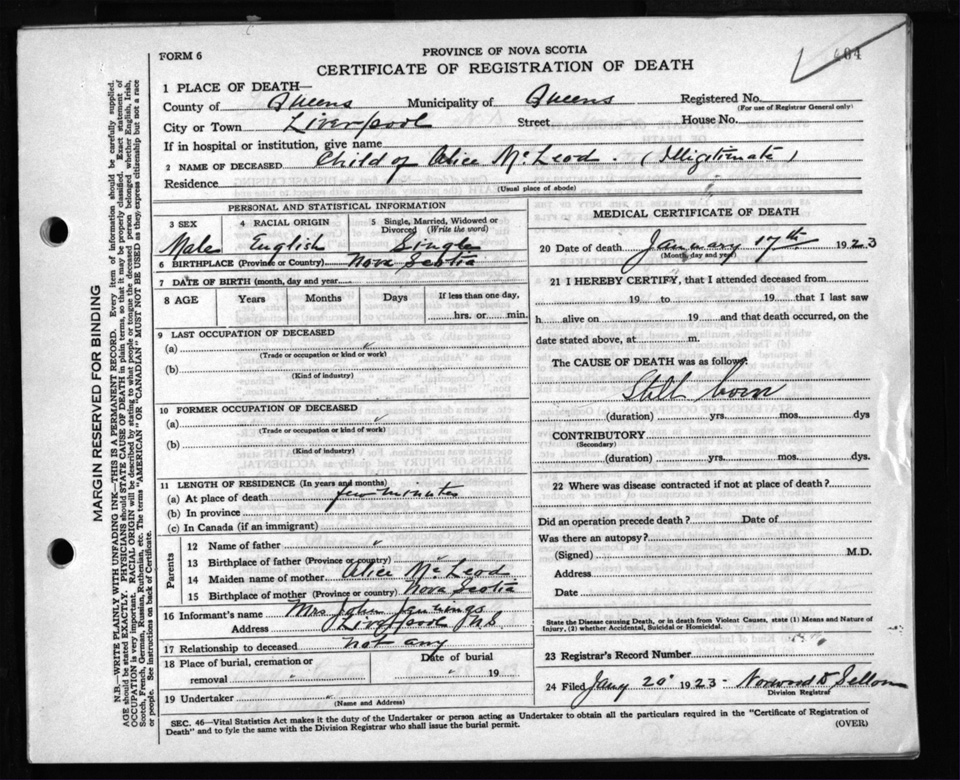 FORM 6
PROVINCE OF NOVA SCOTIA
CERTIFICATE OF REGISTRATION OF DEATH
1 PLACE OF DEATH—
County of Queens Municipality of Queens Registered No.
(For use of Registrar General only)
City or Town Liverpool Street House No.
If in hospital or institution, give name
2 NAME OF DECEASED Child of Alice McLeod. (Illigitimate)
Residence
(Usual place of abode)
PERSONAL AND STATISTICAL INFORMATION
3 SEX 4 RACIAL ORIGIN 5 Single, Married, Widowed or Divorced (Write the word)
Male English Single
6 BIRTHPLACE (Province or Country) Nova Scotia
7 DATE OF BIRTH (month, day and year)
8 AGE Years Months Days If less than one day,
hrs. or min.
9 LAST OCCUPATION OF DECEASED
(a)
(Trade or occupation or kind or work)
(b)
(Kind of industry)
10 FORMER OCCUPATION OF DECEASED
(a)
(Trade or occupation or kind or work)
(b)
(Kind of industry)
11 LENGTH OF RESIDENCE (In years and months)
(a) At place of death few minutes
(b) In province
(c) In Canada (if an immigrant)
Parents
12 Name of father
13 Birthplace of father (Province or country)
14 Maiden name of mother Alice McLeod
15 Birthplace of mother (Province or country) Nova Scotia
16 Informant's name Mrs John Jennings
Address Liverpool N.S
17 Relationship to deceased not any
18 Place of burial, cremation or removal Date of burial
19
19 Undertaker
(Name and Address)
MEDICAL CERTIFICATE OF DEATH
20 Date of death January 17th 1923
(Month, day and year)
21 I HEREBY CERTIFY, that I attended deceased from
19 to 19 that I last saw
h alive on 19 and that death occurred, on
date stated above, at m.
The CAUSE OF DEATH was as follows:
Still born
(duration) yrs. mos. dys
CONTRIBUTORY
(Secondary)
(duration) yrs. mos. dys.
22 Where was disease contracted if not at place of death?
Did an operation precede death? Date of
Was there an autopsy?
(Signed) M.D.
Address
Date
State the Disease causing Death, or in death from Violent Causes, state (1) Means and Nature of Injury, (2) whether Accidental, Suicidal or Homicidal.
23 Registrar's Record Number
24 Filed Jany 20 1923 Norwood D Sellon
Division Registrar
SEC. 46—Vital Statistics Act makes it the duty of the Undertaker or person acting as Undertaker to obtain all the particulars required in the "Certificate of Registration of
Death" and to fyle the same with the Division Registrar who shall issue the burial permit.
(OVER)
MARGIN RESERVED FOR BINDING
N.B.—WRITE PLAINLY WITH UNFADING INK—THIS IS A PERMANENT RECORD. Every item of information should be carefully supplied.
AGE should be stated EXACTLY. PHYSICIANS should STATE CAUSE OF DEATH in plain terms, so that it may be properly classified. Exact statement of
OCCUPATION is very important. RACIAL ORIGIN will be described by stating to what people or tongue the deceased person belonged whether English, Irish,
Scotch, French, German, Russian, Ruthenian, etc. The terms "AMERICAN" OR "CANADIAN" MUST NOT BE USED as they express citizenship but not a race
or people. See instructions on back of Certificate.